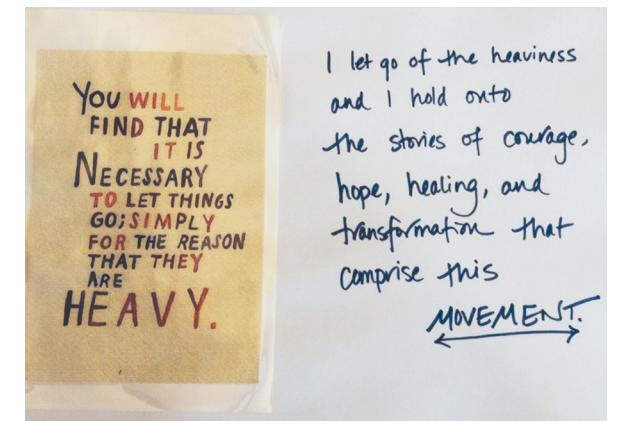 YOU WILL
FIND THAT
IT IS
NECESSARY
TO LET THINGS
GO; SIMPLY
FOR THE REASON
THAT THEY
ARE
HEAVY.
I let go of the heaviness
and I hold onto
the stories of courage,
hope, healing, and
transformation that
comprise this
MOVEMENT.